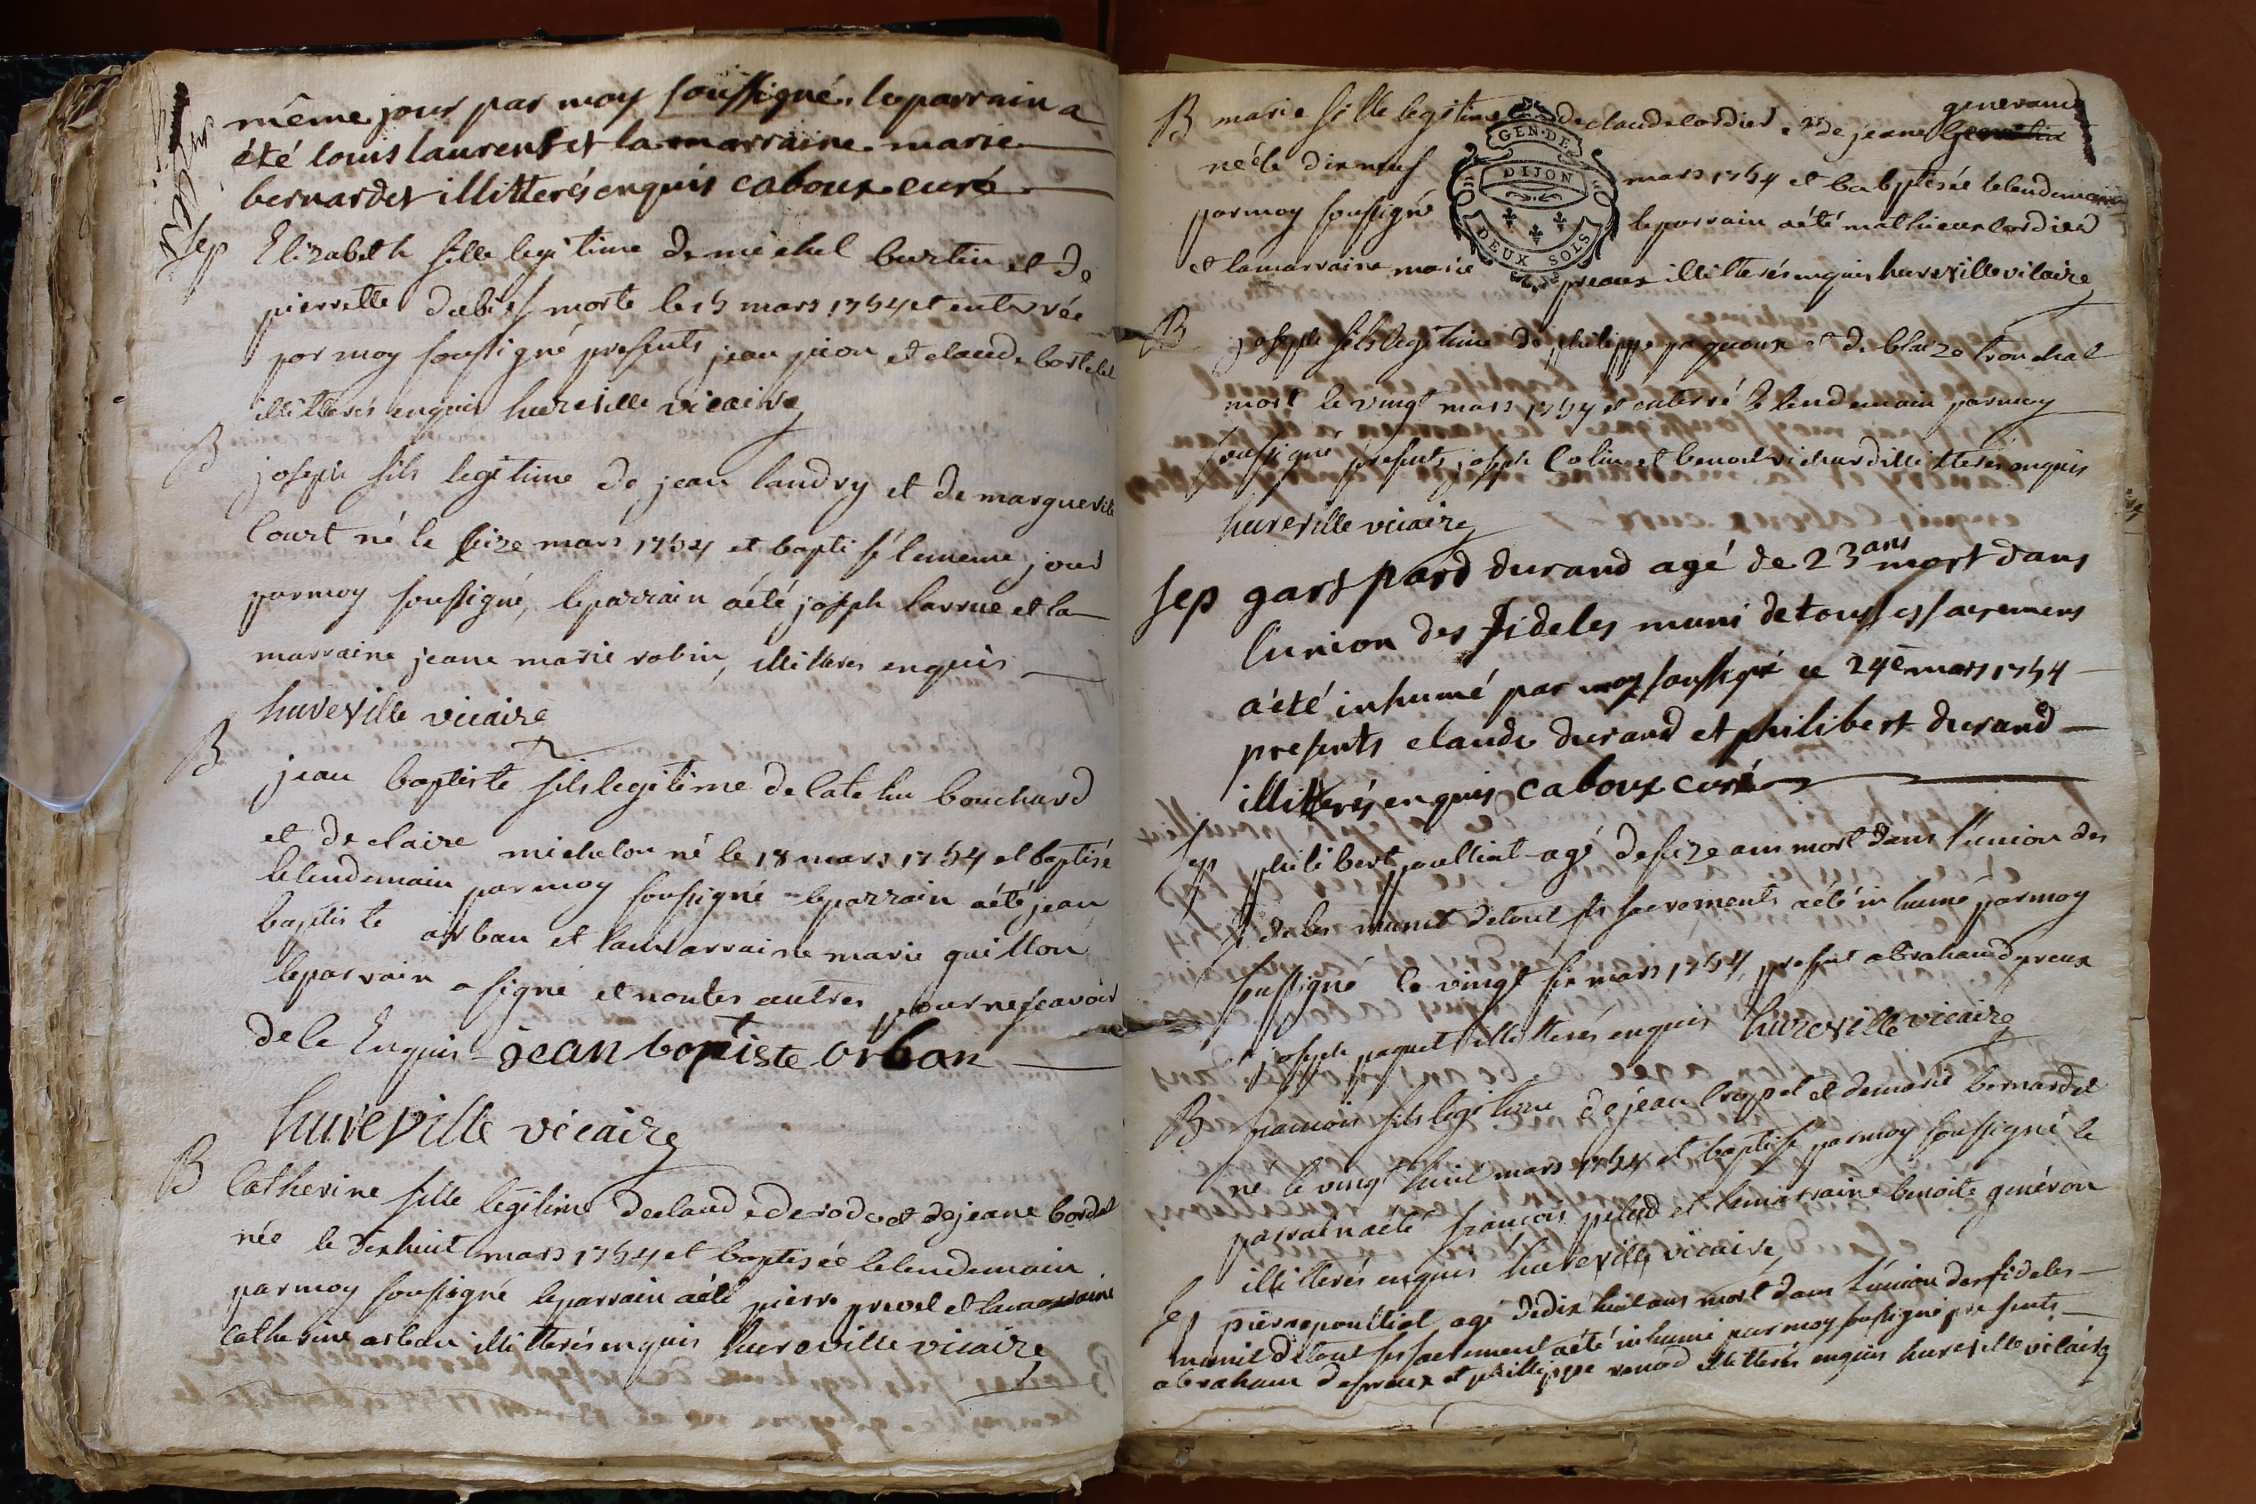 même jour par moy soussigné. le parrain a
été louis laurent et la marraine marie
bernardet illitterés enquis caboux curé
Sep Elizabeth fille legitime de michel burtin et de
pierrette mort le 15 mars 1754 et enterrée
par moy soussigné presents jean pion et claude bortelet
illitterés enquis hureville vicaire
B joseph fils legitime de jean landry et de marguerite
Court né le seize mars 1754 et baptisé le meme jour
par moy soussigné, le parrain a été joseph larrue et la
marraine jeane marie robin, illitteres enquis
hureville vicaire
B jean baptiste fils legitime de bouchard
et de claire michelon né le 18 mars 1754 et baptisé
le lendemain par moy soussigné le parrain a été jean
baptiste arban et la marraine marie guillon
le parrain a signé et non les autres pour ne sçavoir
de le Enquis jean baptiste orban
hureville vicaire
B Catherine fille legitime de claude derode et de jeane bordet
née le dixhuit mars 1754 et baptisée le lendemain
par moy soussigné le parrain a été pierre prevel et la marraine
Catherine arban illitterés enquis hureville vicaire
B marie fille legitime de claude cordier et de jeane generand
née le dixneuf mars 1754 et babptisée le lendemain
par moy soussigné le parrain a été mathieu cordier
et la marraine marie preaux illitterés enquis hureville vicaire
GEN·DE
DIJON
DEUX SOLS
B joseph fils legitime de philippe paquaux et de blaize tronchal
mort le vingt mars 1754 et enterré le lendemain par moy
soussigné presents joseph Colin et benoit richard illitterés enquis
hureville vicaire
sep garspard durand agé de 23 ans mort dans
l'union des fideles muni de tous ses sacremens
a été inhumé par moy soussigné ce 24e mars 1754
presents claude durand et philibert durand
illitterés enquis caboux curé
Sep philibert poulliat agé de seize ans mort dans l'union des
fideles munit de tout ses sacrements a été inhumé par moy
soussigné le vingt six mars 1754, present abraham depreux
et joseph paquet illitterés enquis hureville vicaire
B francois fils legitime de jean troppet et de marie bernardet
né le vingt huit mars 1754 et baptisé par moy soussigné le
parrain a été francois et la marraine benoite genéron
illitterés enquis hureville vicaire
Sep pierre poulliat agé de dix huit ans mort dans l'union des fideles
munit de tout ses sacrement a été inhumé par moy soussigné presents
abraham depreux et phillippe renod illitterés enquis hureville vicaire